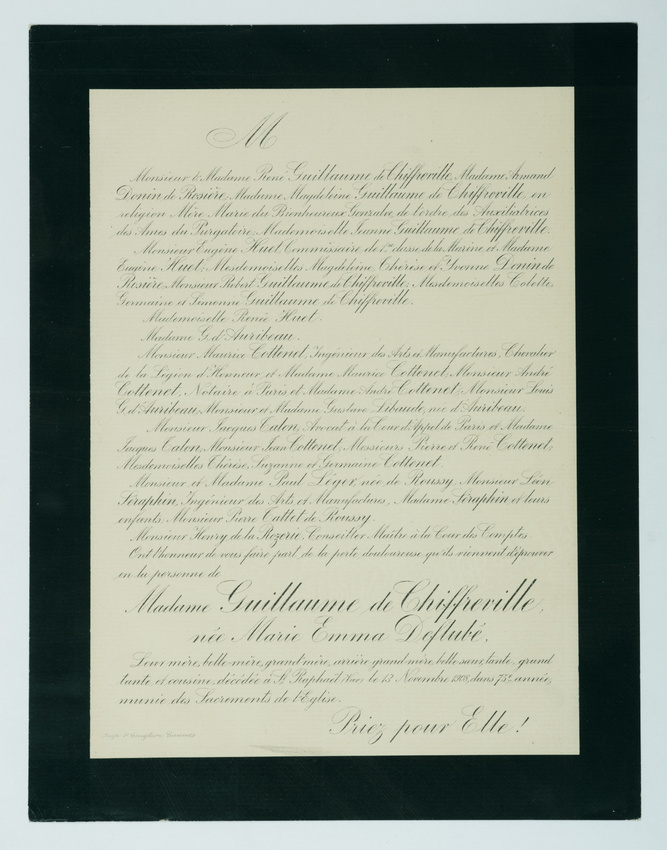 M
Monsieur & Madame René Guillaume de Chiffreville, Madame Armand
Donin de Rosière, Madame Magdeleine Guillaume de Chiffreville, en
religion Mère Marie du Bienheureux Gonzalve de l'ordre des Auxiliatrices
des Ames du Purgatoire, Mademoiselle Jeanne Guillaume de Chiffreville.
Monsieur Eugène Huet, Commissaire de 1re classe de la Marine et Madame
Eugène Huet, Mesdemoiselles Magdeleine, Thérèse et Yvonne Donin de
Rosière, Monsieur Robert Guillaume de Chiffreville, Mesdemoiselles Colette,
Germaine et Simonne Guillaume de Chiffreville.
Mademoiselle Renée Huet.
Madame G. d'Auribeau.
Monsieur Maurice Cottenet, Ingénieur des Arts & Manufactures, Chevalier
de la Légion d'Honneur et Madame Maurice Cottenet, Monsieur André
Cottenet, Notaire à Paris et Madame André Cottenet, Monsieur Louis
G. d'Auribeau, Monsieur et Madame Gustave née d'Auribeau.
Monsieur Jacques Calon, Avocat à la Cour d'Appel de Paris et Madame
Jacques Calon, Monsieur Jean Cottenet, Messieurs Pierre et René Cottenet,
Mesdemoiselles Thérèse, Suzanne et Germaine Cottenet.
Monsieur et Madame Paul Léger, née de Roussy, Monsieur Léon
Séraphin, Ingénieur des Arts et Manufactures, Madame Séraphin et leurs
enfants, Monsieur Pierre Cattet de Roussy.
Monsieur Henry de la Rozerie, Conseiller Maître à la Cour des Comptes.
Ont l'honneur de vous faire part de la perte douloureuse qu'ils viennent d'éprouver
en la personne de
Madame Guillaume de Chiffreville,
née Marie Emma Deflubé,
Leur mère, belle-mère, grand'mère, arrière grand'mère, belle-sœur, tante, grand'
tante et cousine, décédée à St Raphaël (Var) le 13 Novembre 1908, dans 75e année,
munie des Sacrements de l'Eglise.
Priez pour Elle!